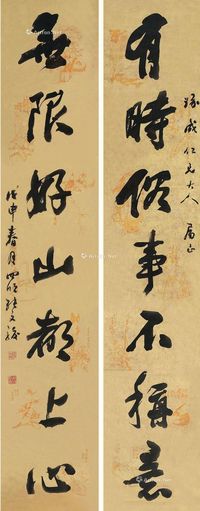 琢成仁兄大人 屬正
有時俗事不稱意
無限好山都上心
戊申春月四明